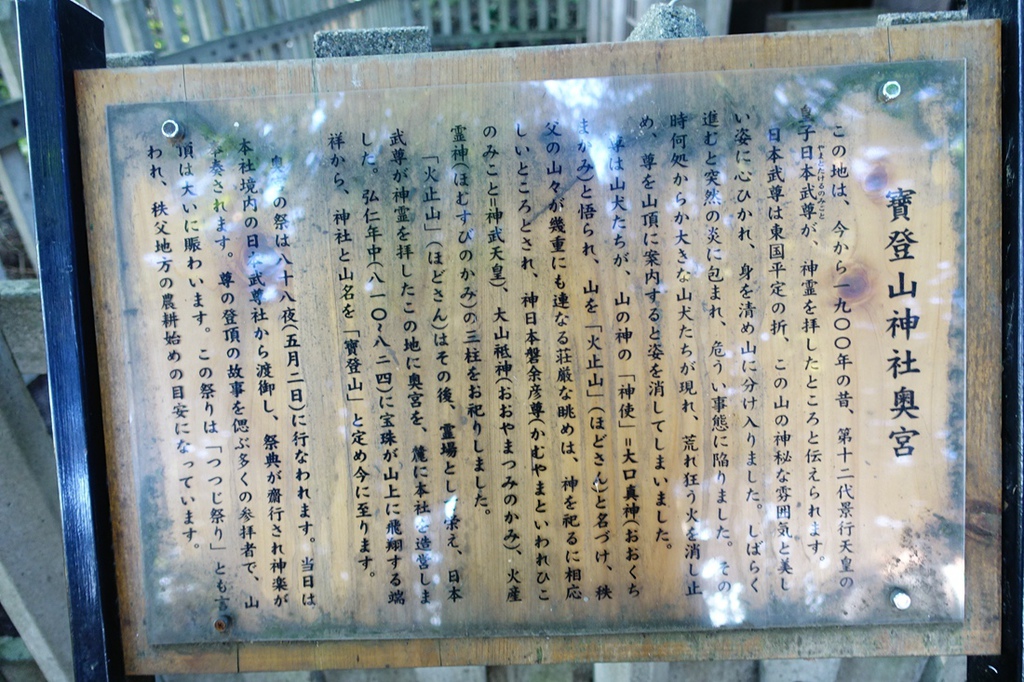 寶登山神社奥宮
この地は、今から一九〇〇年の昔、第十二代景行天皇の
皇子日本武尊が、神霊を拝したところと伝えられます。
やまとたけるのみこと
日本武尊は東国平定の折、この山の神秘な雰囲気と美し
い姿に心ひかれ、身を清め山に分け入りました。しばらく
進むと突然の炎に包まれ、危うい事態に陥りました。その
時何処からか大きな山犬たちが現れ、荒れ狂う火を消し止
め、尊を山頂に案内すると姿を消してしまいました。
尊は山犬たちが、山の神の「神使」=大口真神(おおくち
まかみ)と悟られ、山を「火止山」(ほどさん)と名づけ、秩
父の山々が幾重にも連なる荘厳な眺めは、神を祀るに相応
しいところとされ、神日本磐余彦尊(かむやまといわれひこ
のみこと=神武天皇)、大山祇神(おおやまつみのかみ)、火産
霊神(ほむすびのかみ)の三柱をお祀りしました。
「火止山」(ほどさん)はその後、霊場として栄え、日本
武尊が神霊を拝したこの地に奥宮を、麓に本社を造営しま
した。弘仁年中(八一〇〜八二四)に宝珠が山上に飛翔する端
祥から、神社と山名を「寶登山」と定め今に至ります。
奥宮の祭は八十八夜(五月二日)に行なわれます。当日は
本社境内の日本武尊社から渡御し、祭典が齋行され神楽が
奏されます。尊の登頂の故事を偲ぶ多くの参拝者で、山
頂は大いに賑わいます。この祭りは「つつじ祭り」とも言
われ、秩父地方の農耕始めの目安になっています。